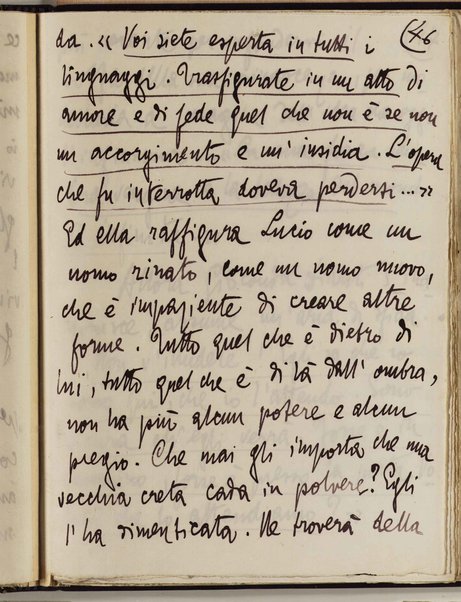 46
da. « Voi siete esperta in tutti i
linguaggi. Trasfigurate in un atto di
amore e di fede quel che non è se non
un accorgimento e un' insidia. L'opera
che fu interrotta doveva perdersi... »
Ed ella raffigura Lucio come un
uomo rinato, come un uomo nuovo,
che è impaziente di creare altre
forme. Tutto quel che è dietro di
lui, tutto quel che è di là dall' ombra,
non ha più alcun potere e alcun
pregio. Che mai gli importa che una
vecchia creta cada in polvere? Egli
l'ha dimenticata. Ne troverà della